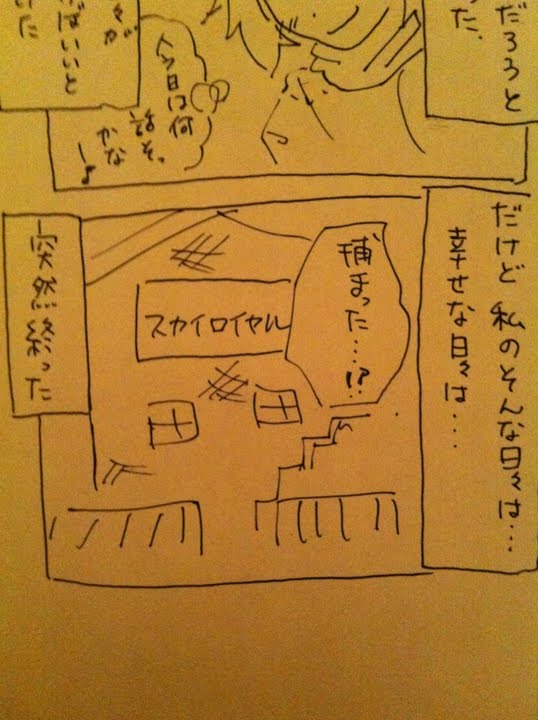 だろうと
った。
々が
ばいいと
いた
今日は何
話そ、
かな
ー♪
だけど 私のそんな日々は…
幸せな日々は…
捕まった…!?
スカイロイヤル
突然終った